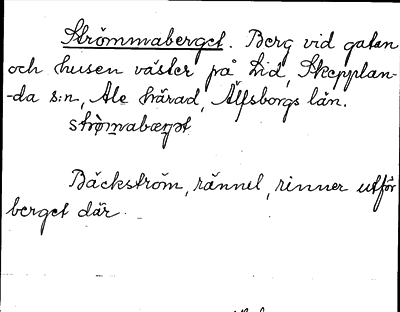 Strömmaberget. Berg vid gatan
och husen väster på Lid, Skepplan-
-da s:n, Ale härad, Älfsborgs län.
Bäckström, rännel, rinner utför
berget där.